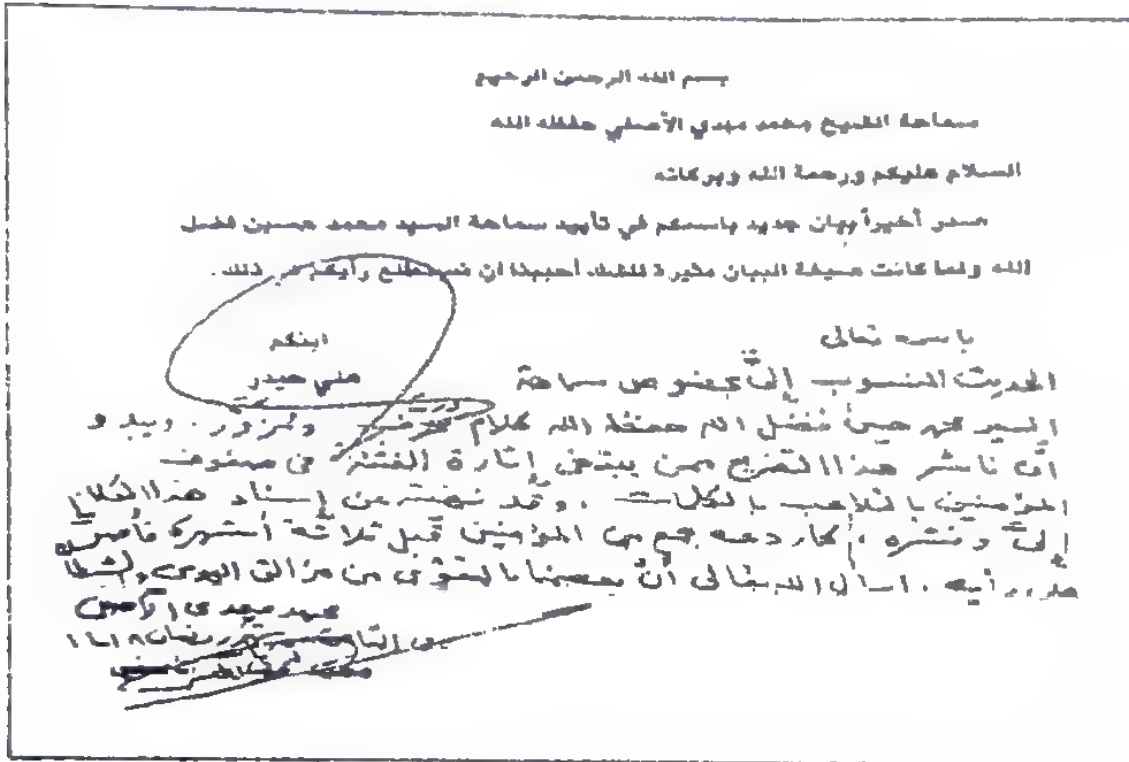 بسم الله الرحمن الرحيم
سماحة الشيخ محمد مهدي الآصفي حفظه الله
السلام عليكم ورحمة الله وبركاته
صدر أخيراً بيان جديد باسمكم في تأييد سماحة السيد محمد حسين فضل
الله ولما كانت صيغة البيان مثيرة للشك أحببنا ان نستطلع رأيكم في ذلك.
ابنكم
علي حيدر
باسمه تعالى
الحديث المنسوب إليّ بخصوص سماحة
السيد محمد حسين فضل الله حفظه الله كلام ومزور. ويبدو
أن ناشر هذا التصريح ممن يبتغي إثارة الفتنة في صفوف
المؤمنين بالتلاعب بالكلمات. وقد عن إسناد هذا الكلام
إليّ ونشره، جمع من المؤمنين قبل ثلاثة أشهر
رأيه. اسأل الله تعالى أن يعصمنا بالتقوى من مزالق الهوى
محمد مهدي الآصفي
في رمضان ١٤١٨